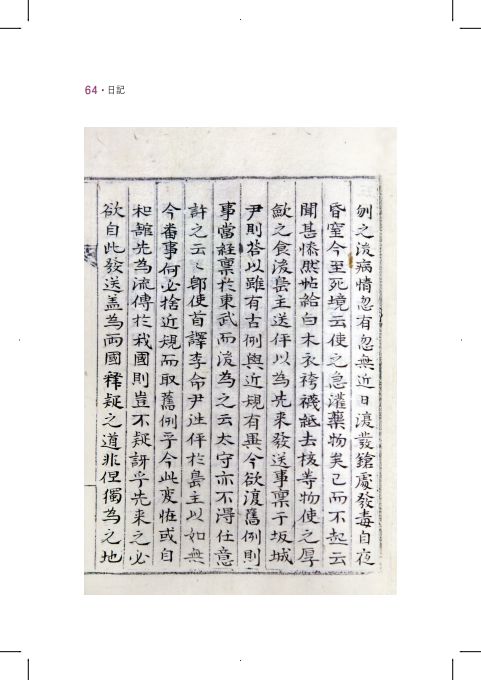 64 · 日記
刎之後病情忽有忽無近日瘡發鎗處發毒自夜
昏窒今至死境云使之急灌藥物矣已而不起云
聞甚慘然帖給白木衣袴襪紙去核等物使之厚
斂之食後島主送伻以為先来發送事禀于坂城
尹則答以雖有古例與近規有異今欲復舊例則
事當経禀扵東武而後為之云太守亦不淂任意
許之云〻卽使首譯李命尹迬伻扵島主以如無
今番事何必捨近規而取舊例乎今此変恠或自
和舘先為流傳扵我國則豈不疑訝乎先来之必
欲自此發送盖為両國釋疑之道非但獨為之地